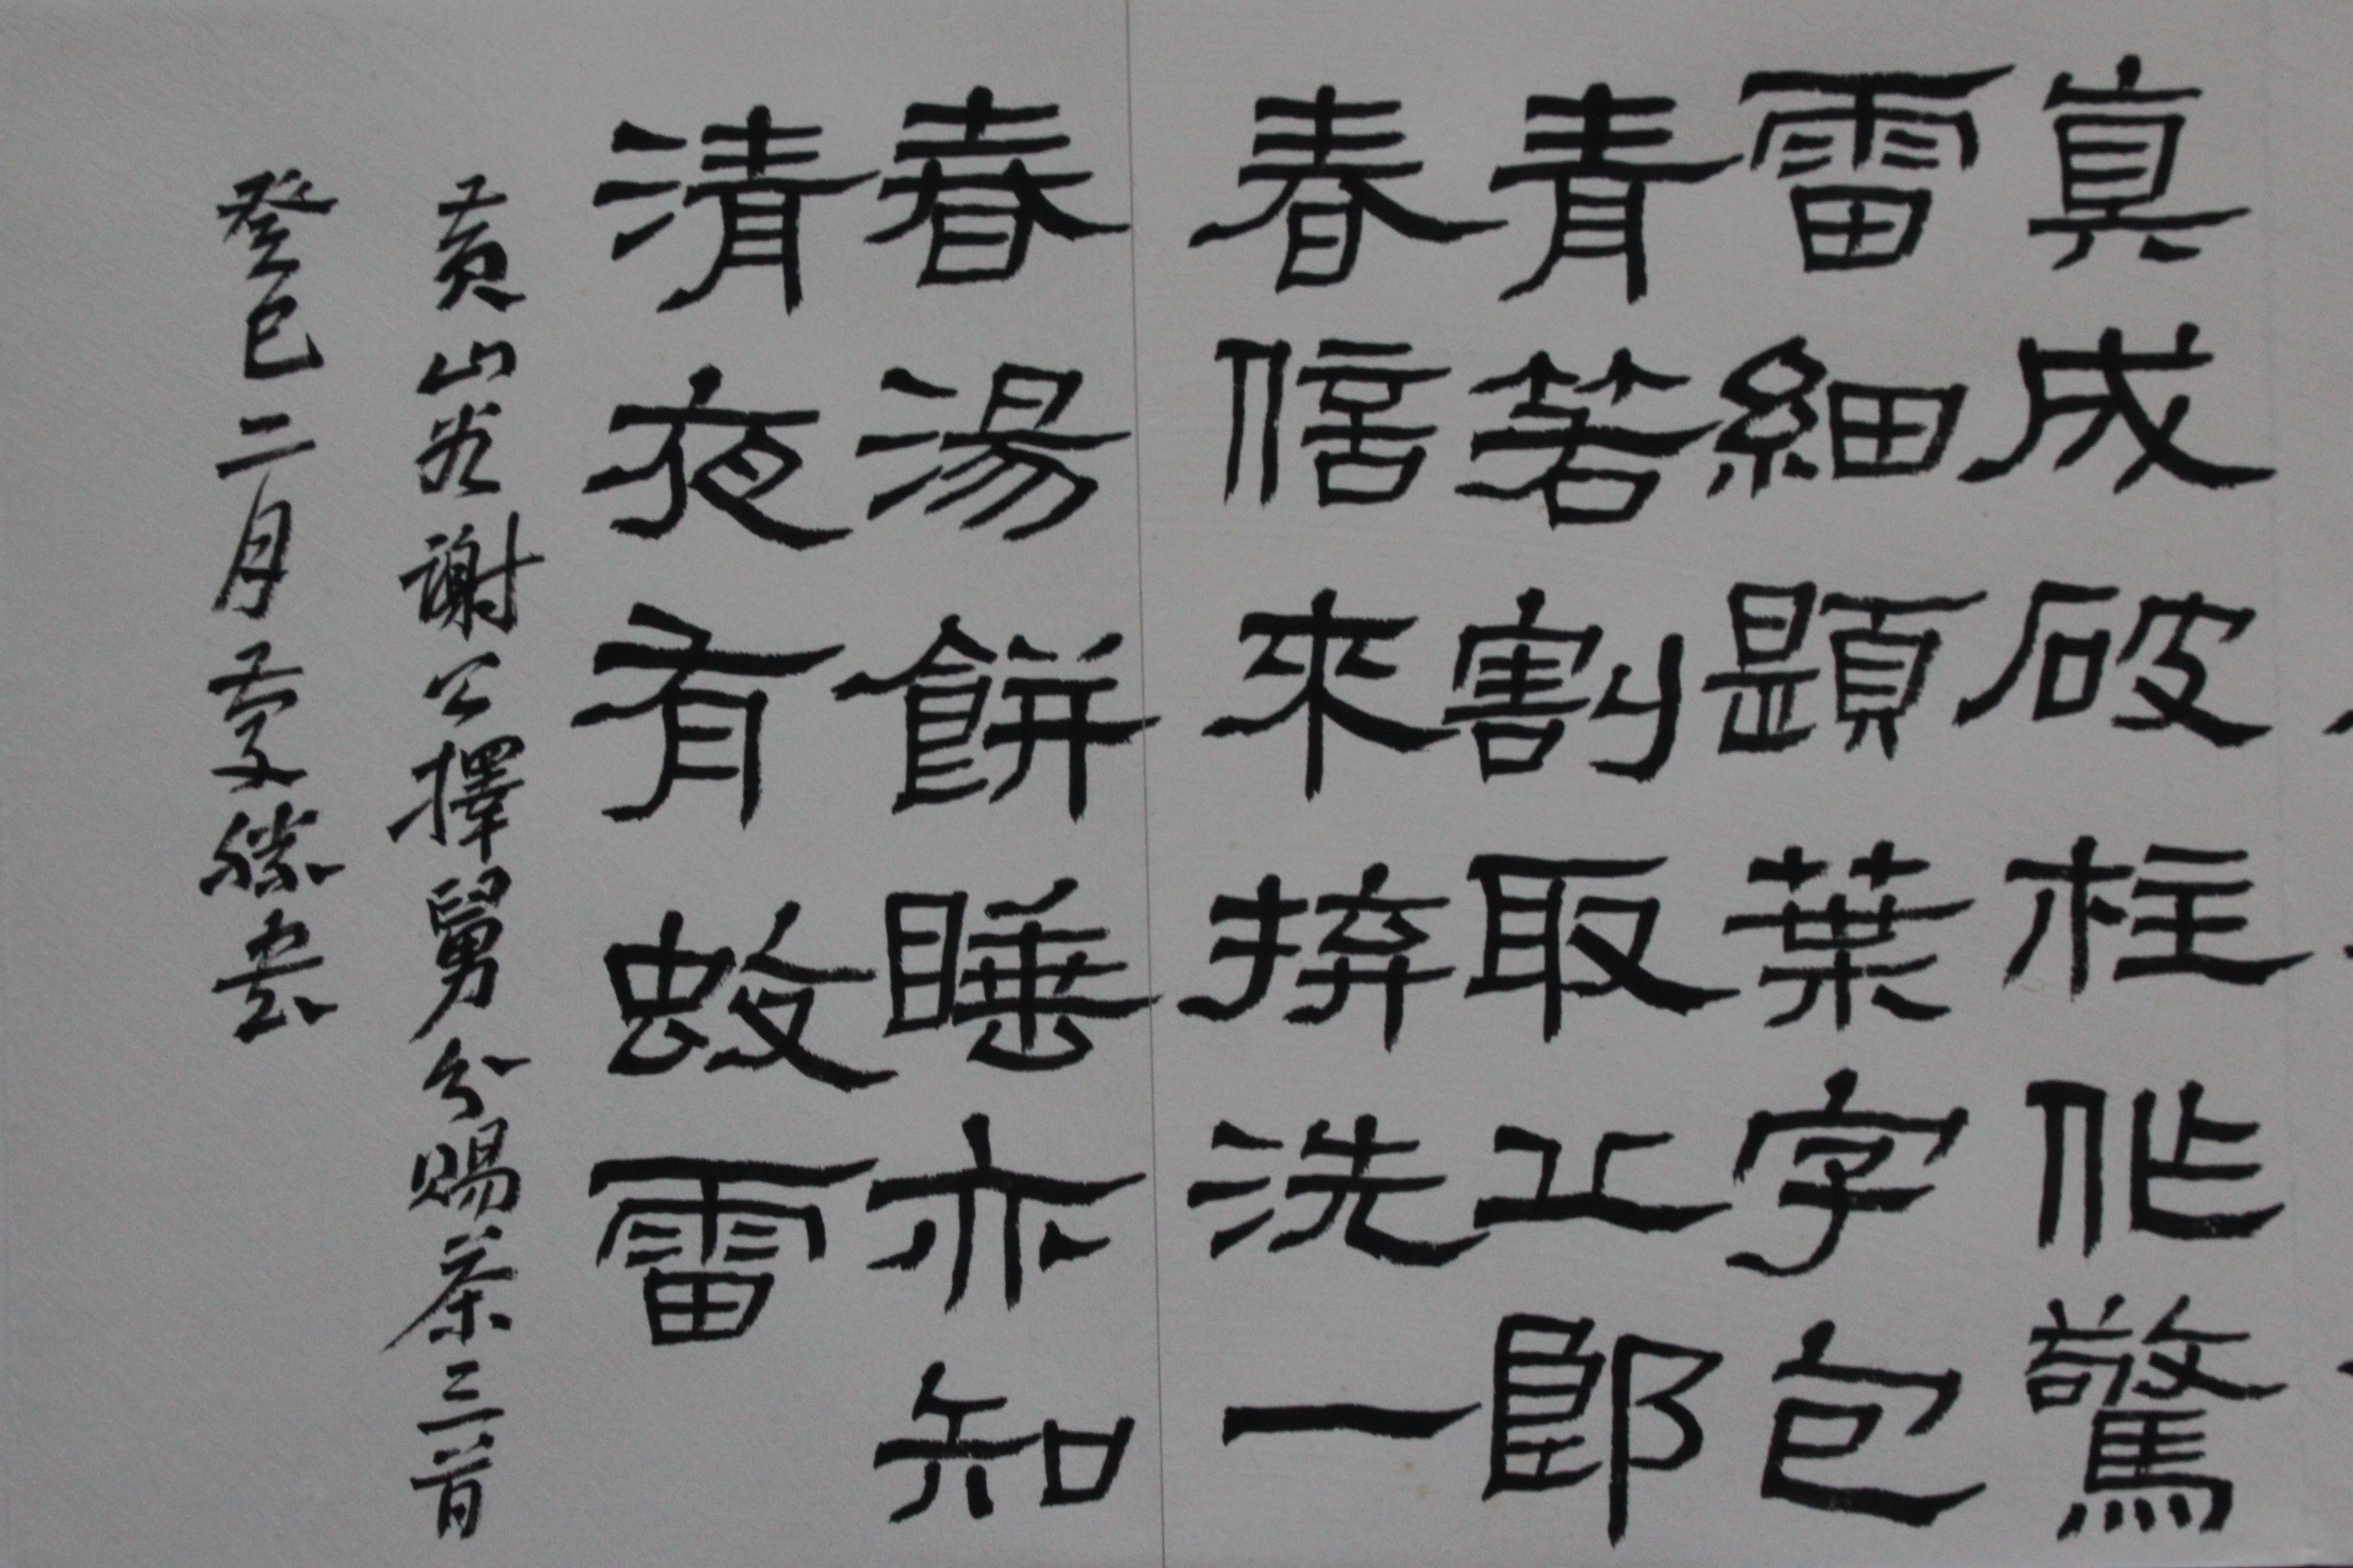 真成破柱作驚
雷細題葉字包
青箬割取丘郎
春信來拚洗一
春湯餅睡亦知
清夜有蚊雷
黃山谷謝公擇舅分賜茶三首
癸巳二月慶勝書